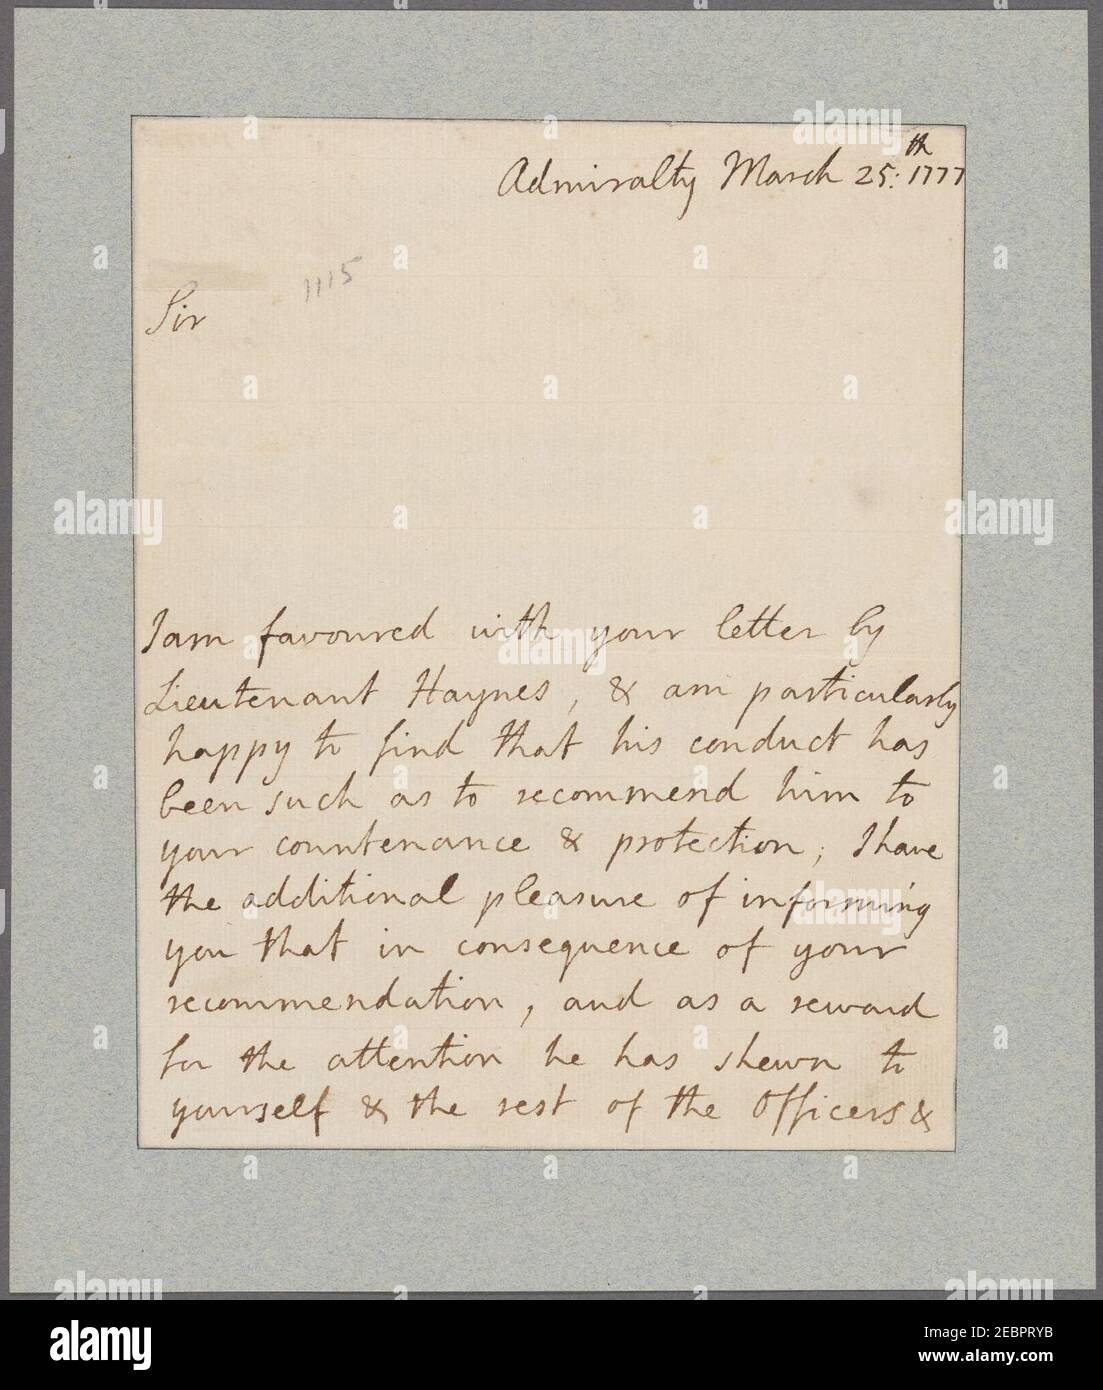 Admiralty March 25:th 1777
1115
Sir
I am favoured with your letter by
Lieutenant Haynes, & am particularly
happy to find that his conduct has
been such as to recommend him to
your countenance & protection; I have
the additional pleasure of informing
you that in consequence of your
recommendation, and as a reward
for the attention he has shewn to
yourself & the rest of the Officers &
alamy
Image ID: 2EBPRYB
www.alamy.com